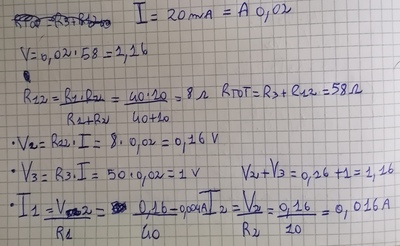 I = 20mA = A 0,02
V=0,02·58=1,16
R12=R1·R2/R1+R2=40·10/40+10=8Ω RTOT=R3+R12=58Ω
·V2=R12·I=8·0,02=0,16V
·V3=R3·I=50·0,02=1V V2+V3=0,16+1=1,16
·I1=V2/R1=0,16/40=0,004A I2=V2/R2=0,16/10=0,016A